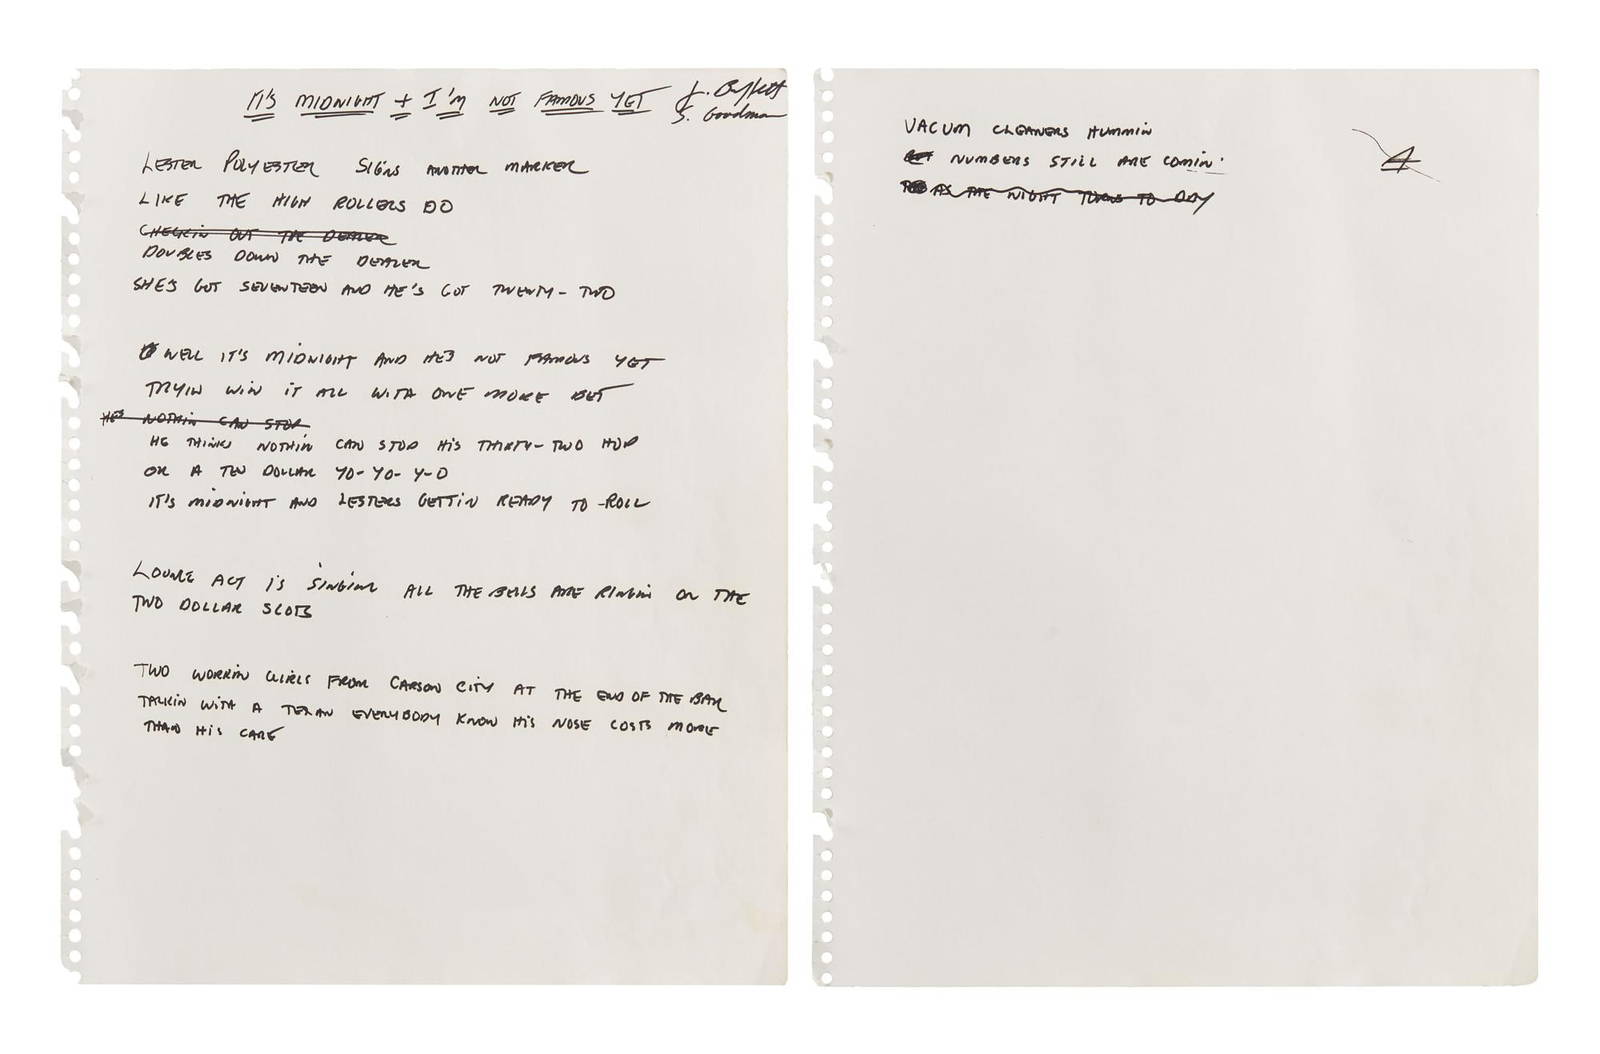 IT'S MIDNIGHT + I'M NOT FAMOUS YET
J. Buffett
S. Goodman
LESTER POLYESTER SIGNS ANOTHER MARKER
LIKE THE HIGH ROLLERS DO
CHECKIN OUT THE DEALER
DOUBLES DOWN THE DEALER
SHE'S GOT SEVENTEEN AND HE'S GOT TWENTY-TWO
WELL IT'S MIDNIGHT AND HE'S NOT FAMOUS YET
TRYIN WIN IT ALL WITH ONE MORE BET
HE'S NOTHIN CAN STOP
HE THINKS NOTHIN CAN STOP HIS THIRTY-TWO HOP
OR A TEN DOLLAR YO-YO-Y-O
IT'S MIDNIGHT AND LESTERS GETTIN READY TO ROLL
LOUNGE ACT IS SINGING ALL THE BELLS ARE RINGIN ON THE
TWO DOLLAR SLOTS
TWO WORKIN GIRLS FROM CARSON CITY AT THE END OF THE BAR
TALKIN WITH A TEXAN EVERYBODY KNOW HIS NOSE COSTS MORE
THAN HIS CARE
VACUM CLEANERS HUMMIN
NUMBERS STILL ARE COMIN'
AS THE NIGHT TURNS TO DAY